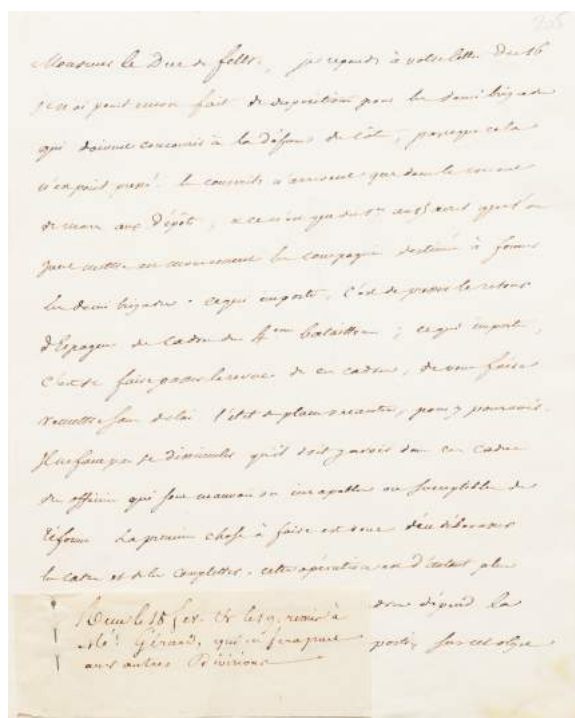 205
Monsieur le Duc de feltre, je reponds à votre lettre du 16
je n'ai point encore fait de dispositions pour les demi brigades
qui doivent concourir à la défense des côtes, parceque cela
n'est point pressé. les conscrits n'arrivent que dans le courant
de mars aux dépôts, et ce n'est que du 1er au 15 avril que l'on
mettre en mouvement les compagnies destinées à former
les demi brigades. ce qui importe, c'est de presser le retour
d'Espagne des cadres des 4eme bataillons; ce qui importe,
c'est de faire passer la revue de ces cadres, de vous faire
remettre sans delai l'état des places vacantes, pour y pourvoir.
Il ne faut pas se dissimuler qu'il doit y avoir dans ces cadres
des officiers qui sont mauvais ou incapables ou susceptibles de
réforme. La premiere chose à faire est donc d'en débarasser
les cadres et de les completter. cette opération est d'autant plus
dépend la
porter sur cet objet
Recu le 18 fev. et le 19, remis à
Mr. Gérard, qui en fera part
aux autres Divisions